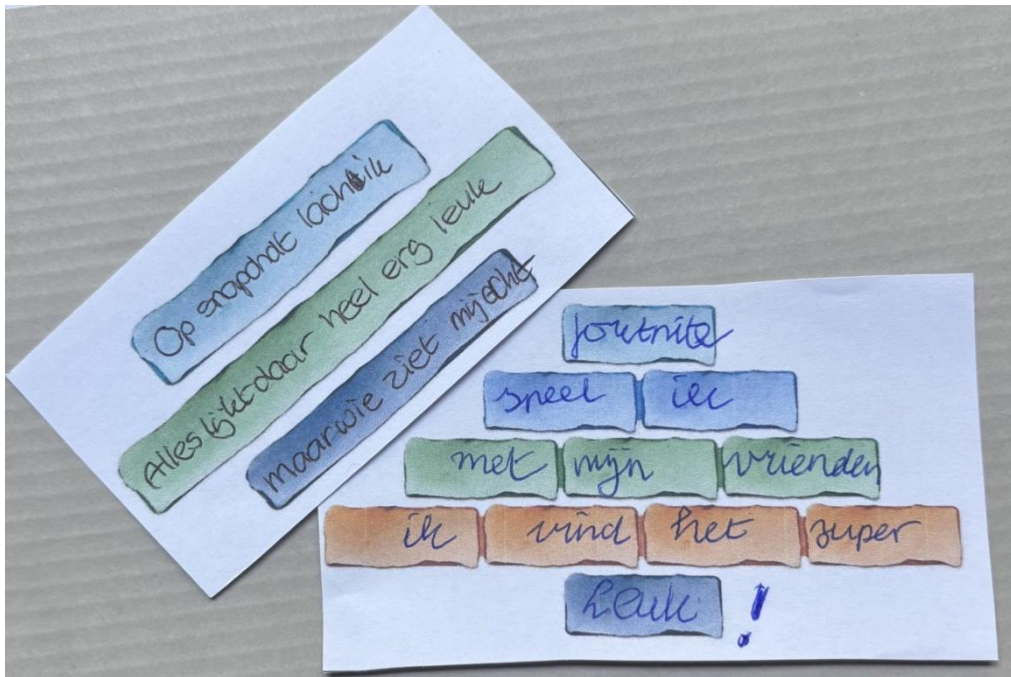 Op snapchat lach ik
Alles lijkt daar heel erg leuk
maar wie ziet mij echt
fortnite
speel ik
met mijn vrienden
ik vind het super
Leuk!